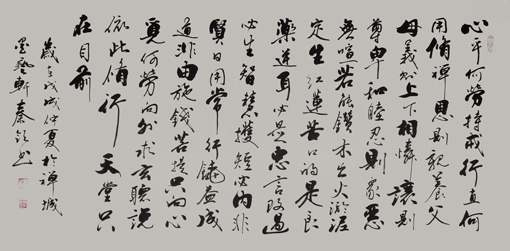 心平何勞持戒行直何
用脩禪恩則親養父
母義則上下相憐讓則
尊卑和睦忍則眾惡
無喧若能鑽木出火淤泥
定生紅蓮苦口的是良
藥逆耳必是忠言改過
必生智慧護短心内非
賢日用常行饒益成
道非由施錢菩提只向心
覓何勞向外求玄聽說
依此脩行天堂只
在目前
歲戊戌仲夏於禪城
墨藝軒秦書